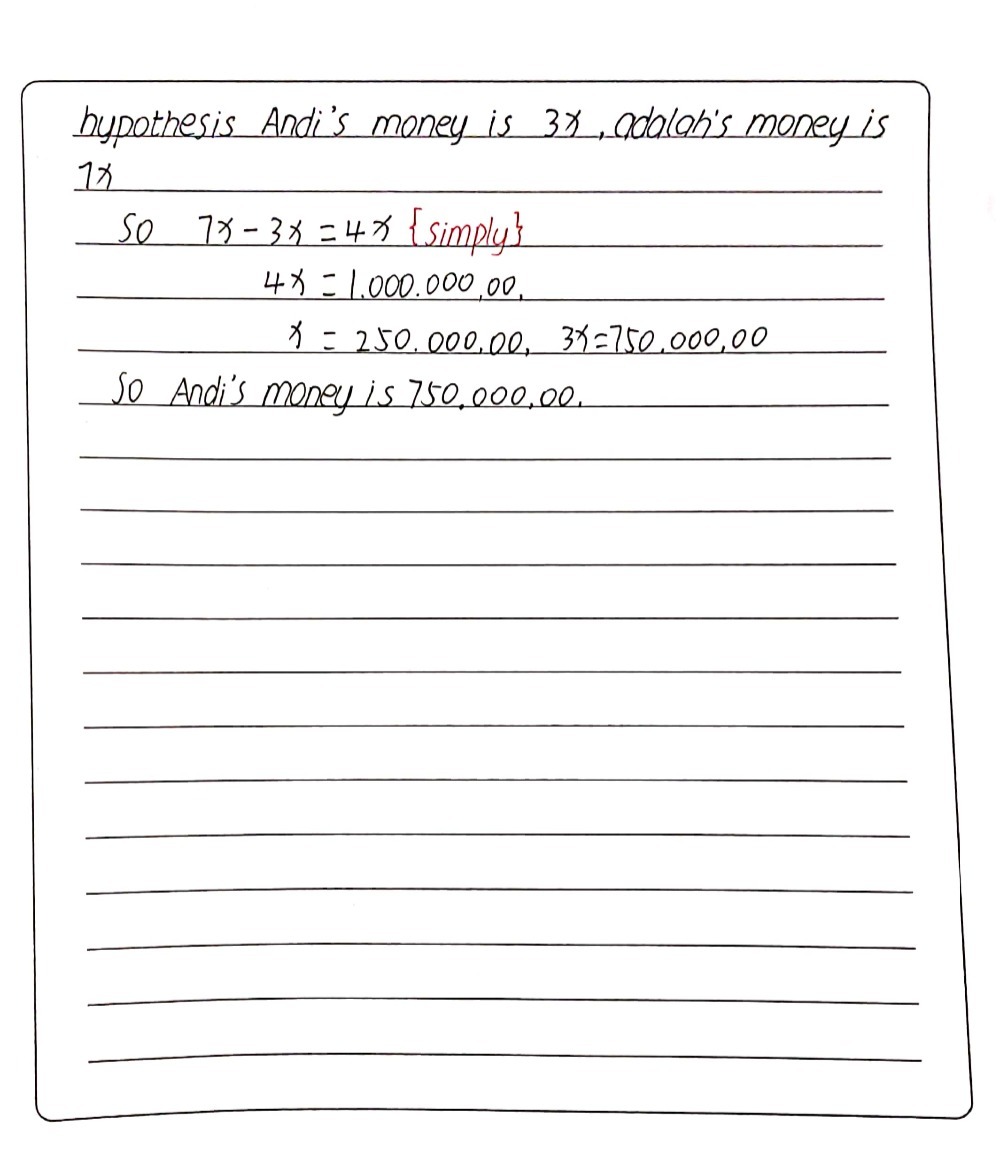 hypothesis Andi's money is 3x, adalah's money is
7x
So 7x - 3x = 4x {simply}
4x = 1.000.000,00,
x = 250.000,00, 3x=750.000,00
So Andi's money is 750.000,00.